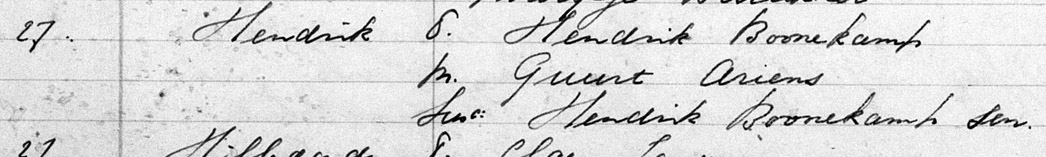 27. Hendrik ϑ. Hendrik Boonekamp
m. Guurt Ariens
Susc: Hendrik Boonekamp sen.
27